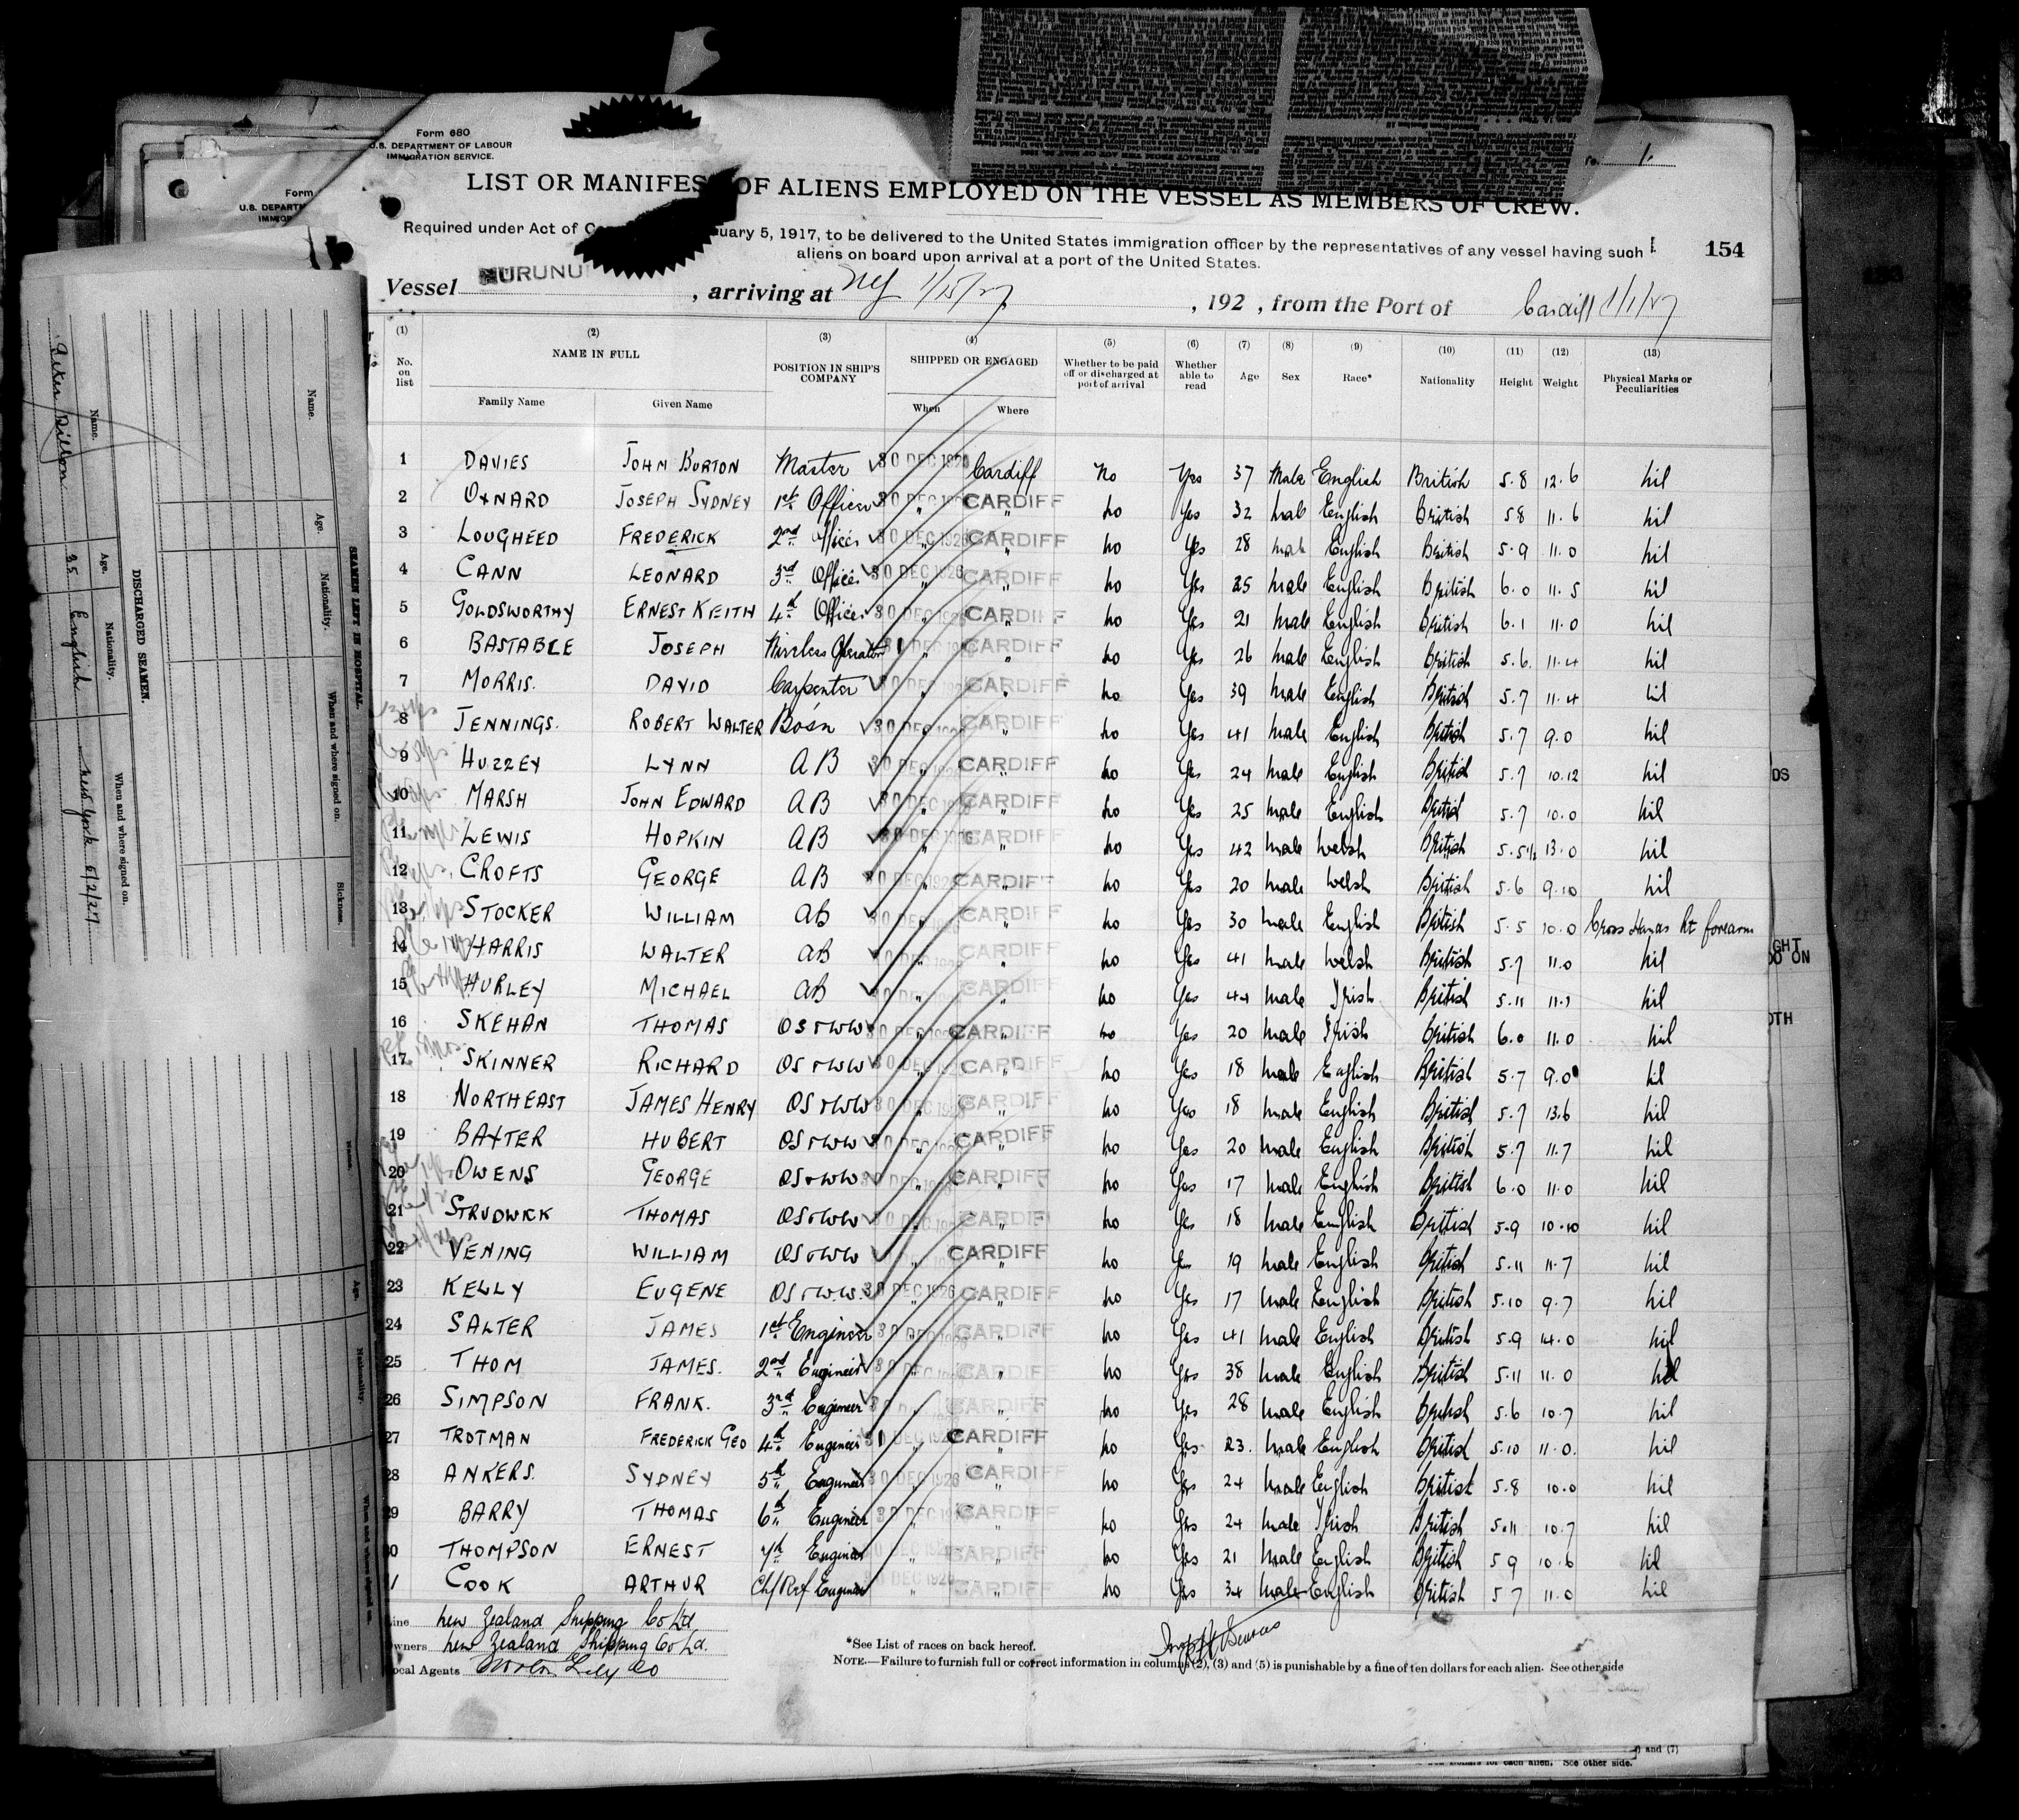 Form 680
U.S. DEPARTMENT OF LABOUR
IMMIGRATION SERVICE.
1.
LIST OR MANIFES OF ALIENS EMPLOYED ON THE VESSEL AS MEMBERS OF CREW.
Required under Act of uary 5, 1917, to be delivered to the United States immigration officer by the representatives of any vessel having such
aliens on board upon arrival at a port of the United States.
154
Vessel , arriving at NY 1/15/27 , 192 , from the Port of Cardiff 1/1/27
(1) (2) (3) (4) (5) (6) (7) (8) (9) (10) (11) (12) (13)
No. on list NAME IN FULL Family Name Given Name POSITION IN SHIP'S COMPANY SHIPPED OR ENGAGED When Where Whether to be paid off or discharged at port of arrival Whether able to read Age Sex Race* Nationality Height Weight Physical Marks or Peculiarities
1 DAVIES JOHN BURTON Master 30 DEC 1926 Cardiff No Yes 37 Male English British 5.8 12.6 Nil
2 OXNARD JOSEPH SYDNEY 1st Officer 30 DEC 1926 " CARDIFF " No Yes 32 Male English British 5 8 11.6 Nil
3 LOUGHEED FREDERICK 2nd Officer 30 DEC 1926 " CARDIFF " No Yes 28 Male English British 5.9 11.0 Nil
4 CANN LEONARD 3rd Officer 30 DEC 1926 " CARDIFF " No Yes 25 Male English British 6.0 11.5 Nil
5 GOLDSWORTHY ERNEST KEITH 4th Officer 30 DEC 1926 " CARDIFF " No Yes 21 Male English British 6.1 11.0 Nil
6 BASTABLE JOSEPH Wireless Operator 31 DEC 1926 " CARDIFF " No Yes 26 Male English British 5.6. 11.4 Nil
7 MORRIS. DAVID Carpenter 30 DEC 1926 " CARDIFF " No Yes 39 Male English British 5.7 11.4 Nil
8 JENNINGS. ROBERT WALTER Bosn 30 DEC 1926 " CARDIFF " No Yes 41 Male English British 5.7 9.0 Nil
9 HUZZEY LYNN AB 30 DEC 1926 " CARDIFF " No Yes 24 Male English British 5.7 10.12 Nil
10 MARSH JOHN EDWARD AB 30 DEC 1926 " CARDIFF " No Yes 25 Male English British 5.7 10.0 Nil
11 LEWIS HOPKIN AB 30 DEC 1926 " CARDIFF " No Yes 42 Male Welsh British 5.5½ 13.0 Nil
12 CROFTS GEORGE AB 30 DEC 1926 " CARDIFF " No Yes 20 Male Welsh British 5.6 9.10 Nil
13 STOCKER WILLIAM AB 30 DEC 1926 " CARDIFF " No Yes 30 Male English British 5.5 10.0 Cross Hands Rt forearm
14 HARRIS WALTER AB 30 DEC 1926 " CARDIFF " No Yes 41 Male Welsh British 5.7 11.0 Nil
15 HURLEY MICHAEL AB 30 DEC 1926 " CARDIFF " No Yes 44 Male Irish British 5.11 11.7 Nil
16 SKEHAN THOMAS OS & WW 30 DEC 1926 " CARDIFF " No Yes 20 Male Irish British 6.0 11.0 Nil
17 SKINNER RICHARD OS & WW 30 DEC 1926 " CARDIFF " No Yes 18 Male English British 5.7 9.0 Nil
18 NORTHEAST JAMES HENRY OS & WW 30 DEC 1926 " CARDIFF " No Yes 18 Male English British 5.7 13.6 Nil
19 BAXTER HUBERT OS & WW 30 DEC 1926 " CARDIFF " No Yes 20 Male English British 5.7 11.7 Nil
20 OWENS GEORGE OS & WW 30 DEC 1926 " CARDIFF " No Yes 17 Male English British 6.0 11.0 Nil
21 STRUDWICK THOMAS OS & WW 30 DEC 1926 " CARDIFF " No Yes 18 Male English British 5.9 10.10 Nil
22 VENING WILLIAM OS & WW " CARDIFF " No Yes 19 Male English British 5.11 11.7 Nil
23 KELLY EUGENE OS & W.W. 30 DEC 1926 " CARDIFF " No Yes 17 Male English British 5.10 9.7 Nil
24 SALTER JAMES 1st Engineer 30 DEC 1926 " CARDIFF " No Yes 41 Male English British 5.9 14.0 Nil
25 THOM JAMES. 2nd Engineer 30 DEC 1926 " CARDIFF " No Yes 38 Male English British 5.11 11.0 Nil
26 SIMPSON FRANK. 3rd Engineer 30 " CARDIFF " No Yes 28 Male English British 5.6 10.7 Nil
27 TROTMAN FREDERICK GEO 4th Engineer 31 DEC 1926 " CARDIFF " No Yes 23. Male English British 5.10 11.0. Nil
28 ANKERS. SYDNEY 5th Engineer 30 DEC 1926 " CARDIFF " No Yes 24 Male English British 5.8 10.0 Nil
29 BARRY THOMAS 6th Engineer 30 DEC 1926 " CARDIFF " No Yes 24 Male Irish British 5.11 10.7 Nil
30 THOMPSON ERNEST 7th Engineer 30 DEC 1926 " CARDIFF " No Yes 21 Male English British 5 9 10.6 Nil
1 COOK ARTHUR Chf Ref Engineer 30 DEC 1926 " CARDIFF " No Yes 34 Male English British 5 7 11.0 Nil
Line New Zealand Shipping Co Ltd.
Owners New Zealand Shipping Co Ld.
Local Agents Norton Lilly Co
*See List of races on back hereof.
NOTE.—Failure to furnish full or correct information in columns (2), (3) and (5) is punishable by a fine of ten dollars for each alien. See other side
) and (7)
for each alien. See other side.
Form
U.S. DEPARTM
IMMIGR
SEAMEN LEFT IN HOSPITAL.
Name. Age. Nationality. When and where signed on. Sickness.
DISCHARGED SEAMEN.
Name. Age. Nationality. When and where signed on.
Peter Dillon 35 English New York 5/2/27
DS
GHT
OO ON
OTH